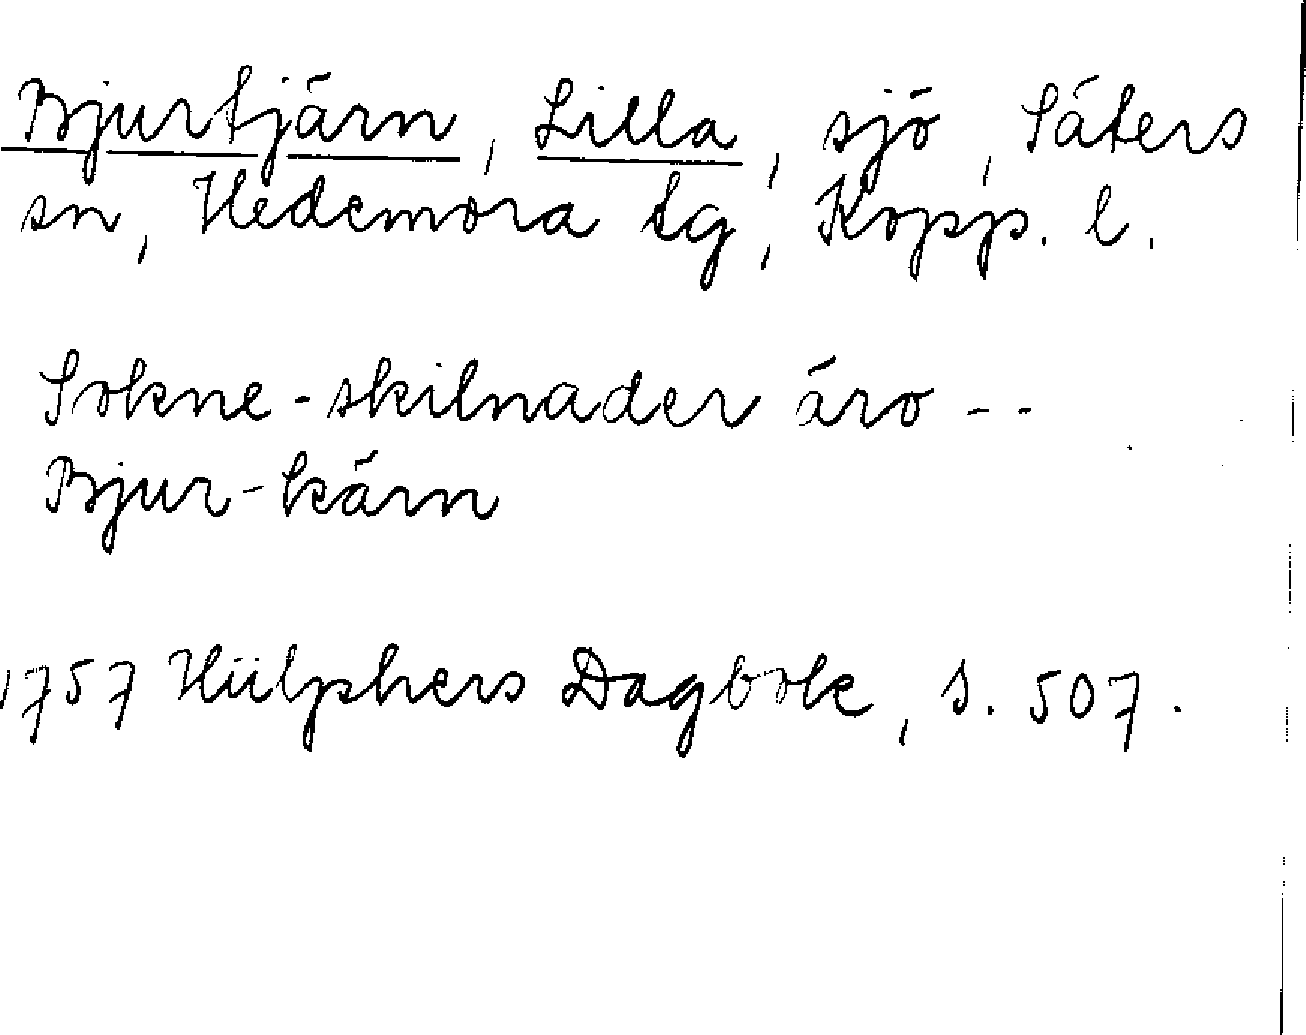 Bjurtjärn, Lilla, sjö, Säters
sn, Hedemora tg, Kopp. l.
Sokne-skilnader äro --
Bjur-kärn
1757 Hülphers Dagbok, s. 507.